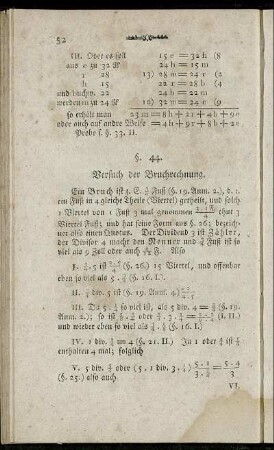 52
III. Oder es soll 15 e = 32 h (8
aus e zu 32 Rl 24 h = 15 m
r 28 13) 28 m = 24 r (2
h 15 22 r = 24 b
und buchw. 22 24 b = 22 m
werden m zu 24 Rl 12) 32 m = 24 e (9
so erhält man 23 m = 8h + 2r + 4b + 9e
oder auch auf andre Weise = 4h + 9r + 8b + 2e
Probe s. §. 33. II.
§. 44.
Versuch der Bruchrechnung.
Ein Bruch ist z. E. ¾ Fuß (§. 19. Anm. 2.), d. i.
ein Fuß in 4 gleiche Theile (Viertel) getheilt, und solch
1 Viertel von 1 Fuß 3 mal genommen
Viertel Fuß; und hat seine Form aus §. 26; bezeich-
net also einen Quotus. Der Dividend 3 ist Zähler,
der Divisor 4 macht den Nenner und ¾ Fuß ist so
viel als 9 Zoll oder auch Fuß. Also
I. ¾ . 5 ist (§. 26.) 15 Viertel, und offenbar
eben so viel als 5 . ¾ (§. 16. I.)
II. div. 5 ist (§. 19. Anm. 4.)
III. Da 5 . ¼ so viel ist, als 5 div. 4 = 5/4 (§. 19.
Anm. 2.); so ist oder (I. II.)
und wieder eben so viel als (§. 16. I.)
IV. 1 div. ¼ = 4 (§. 21. II.) In 1 oder 4/4 ist ¼
enthalten 4 mal; folglich
V. 5 div. ¾ oder (5 . 1 div. 3 . ¼)
(§. 25.) also auch
VI.